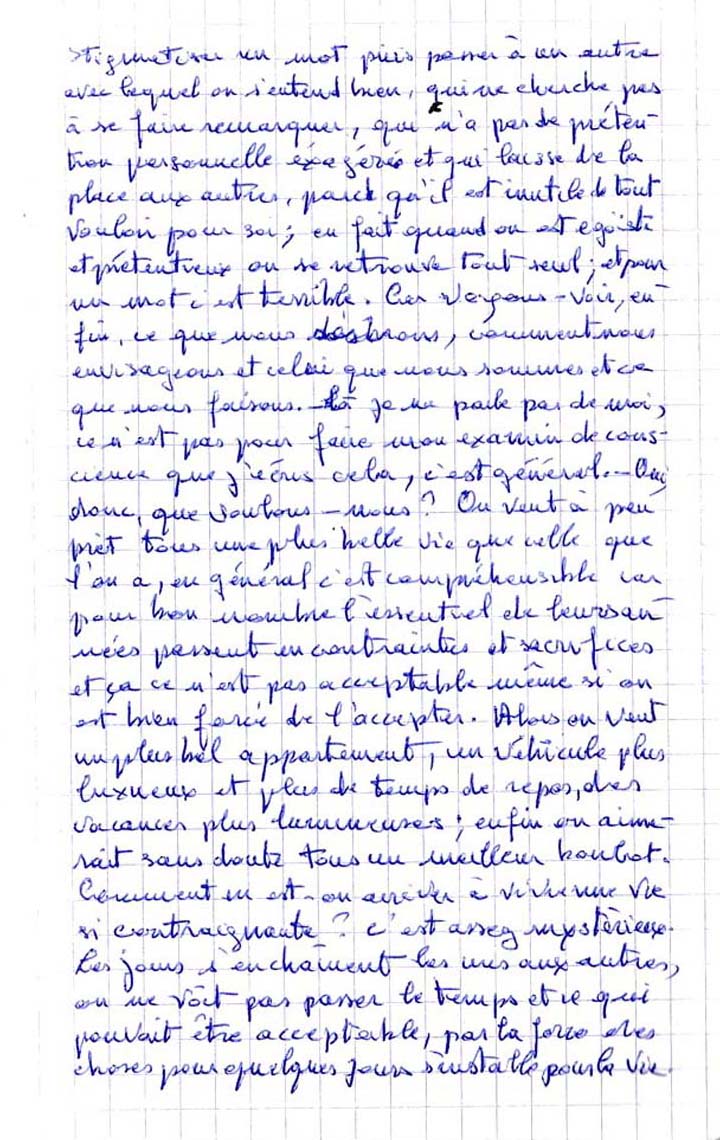 Stigmatiser un mot puis passer à un autre
avec lequel on s'entend bien, qui ne cherche pas
à se faire remarquer, qui n'a pas de préten-
tion personnelle éxagérée et qui laisse de la
place aux autres, parce qu'il est inutile de tout
vouloir pour soi; en fait quand on est egoïste
et prétentieux on se retrouve tout seul; et pour
un mot c'est terrible. Car voyons-voir, en-
fin, ce que nous désirons, comment nous
envisageons et celui que nous sommes et ce
que nous faisons. - Là je ne parle pas de moi,
ce n'est pas pour faire mon examen de cons-
cience que j'écris cela, c'est général. - Oui,
donc, que voulons-nous? On veut à peu
prêt tous une plus belle vie que celle que
l'on a, en général c'est compréhensible car
pour bon nombre l'essentiel de leurs an-
nées passent en contraintes et sacrifices
et ça ce n'est pas acceptable même si on
est bien forcé de l'accepter. Alors on veut
un plus bel appartement, un véhicule plus
luxueux et plus de temps de repos, des
vacances plus lumineuses; enfin on aime-
rait sans doute tous un meilleur boulot.
Comment en est-on arriver à vivre une vie
si contraignante? c'est assez mystérieux.
Les jours s'enchaînent les uns aux autres,
on ne voit pas passer le temps et ce qui
pouvait être acceptable, par la force des
choses pour quelques jours s'installe pour la vie.